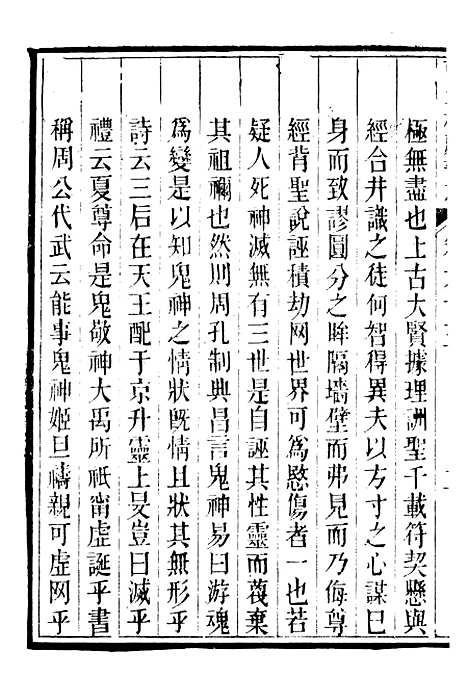 極無盡也上古大賢據理訓聖千載符契懸與
經合井識之徒何智得異夫以方寸之心謀巳
身而致謬圓分之眸隔墻壁而弗見而乃侮尊
經背聖說誣積劫网世界可為愍傷者一也若
疑人死神滅無有三世是自誣其性靈而蔑棄
其祖禰也然則周孔制典昌言鬼神易曰游魂
為變是以知鬼神之情狀旣情且狀其無形乎
詩云三后在天王配于京升靈上旻豈曰滅乎
禮云夏尊命是鬼敬神大禹所祇甯虛誕乎書
稱周公代武云能事鬼神姬旦禱親可虛网乎